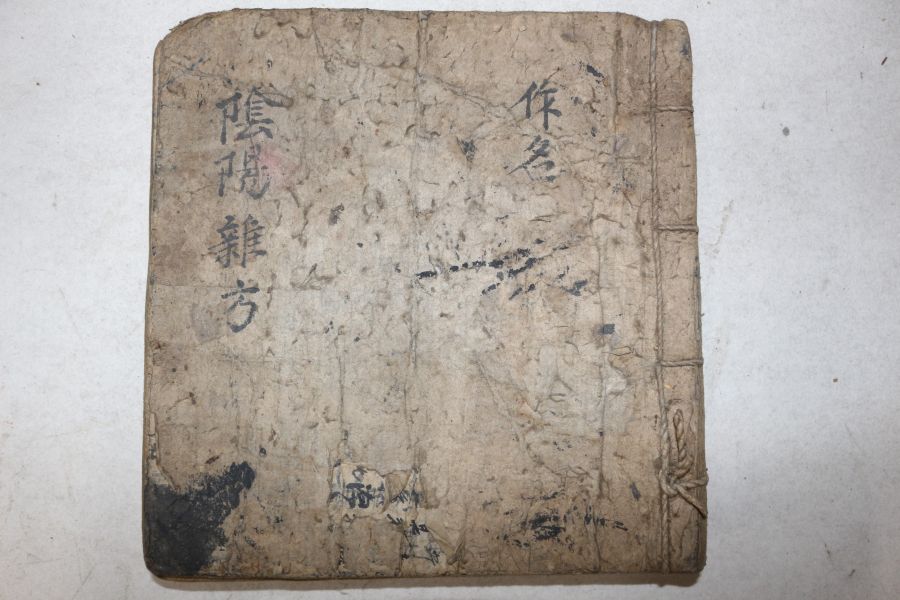 作名
陰陽雜方